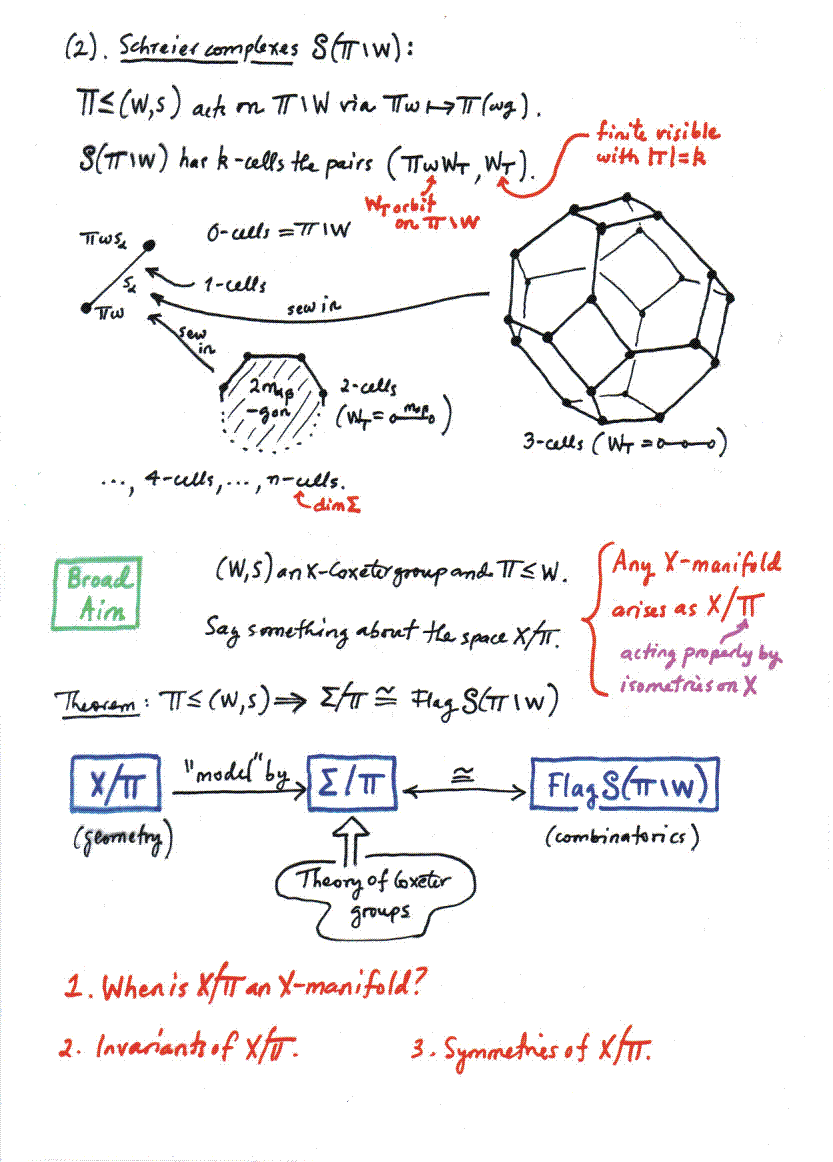 (2). Schreier complexes S(Π\W):
Π≤(W,S) acts on Π\W via Πw↦Π(wg).
S(Π\W) has k-cells the pairs (ΠwW_T, W_T).
finite visible
with |T|=k
W_T orbit
on Π\W
0-cells = Π\W
Πws_α
s_α
Πw
1-cells
sew in
sew
in
2m_αβ
-gon
2-cells
(W_T = o—m_αβ—o)
3-cells (W_T = o—o—o)
..., 4-cells, ..., n-cells.
dim Σ
Broad
Aim
(W,S) an X-Coxeter group and Π≤W.
Say something about the space X/Π.
Any X-manifold
arises as X/Π
acting properly by
isometries on X
Theorem: Π≤(W,S) ⟹ Σ/Π ≅ Flag S(Π\W)
X/Π
"model" by
Σ/Π
≅
Flag S(Π\W)
(geometry)
(combinatorics)
Theory of Coxeter
groups
1. When is X/Π an X-manifold?
2. Invariants of X/Π.
3. Symmetries of X/Π.